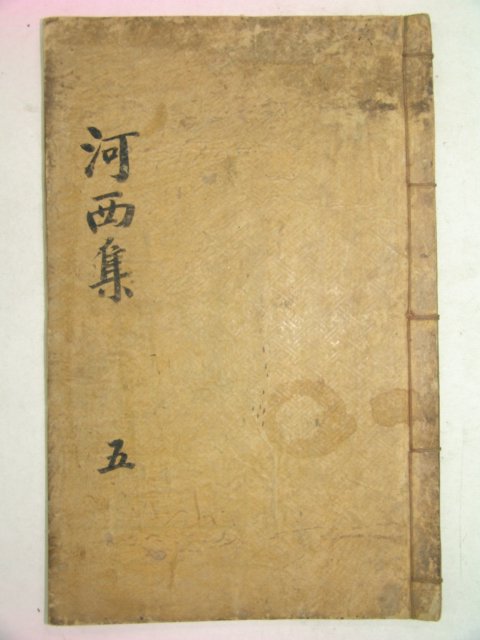 河西集
五